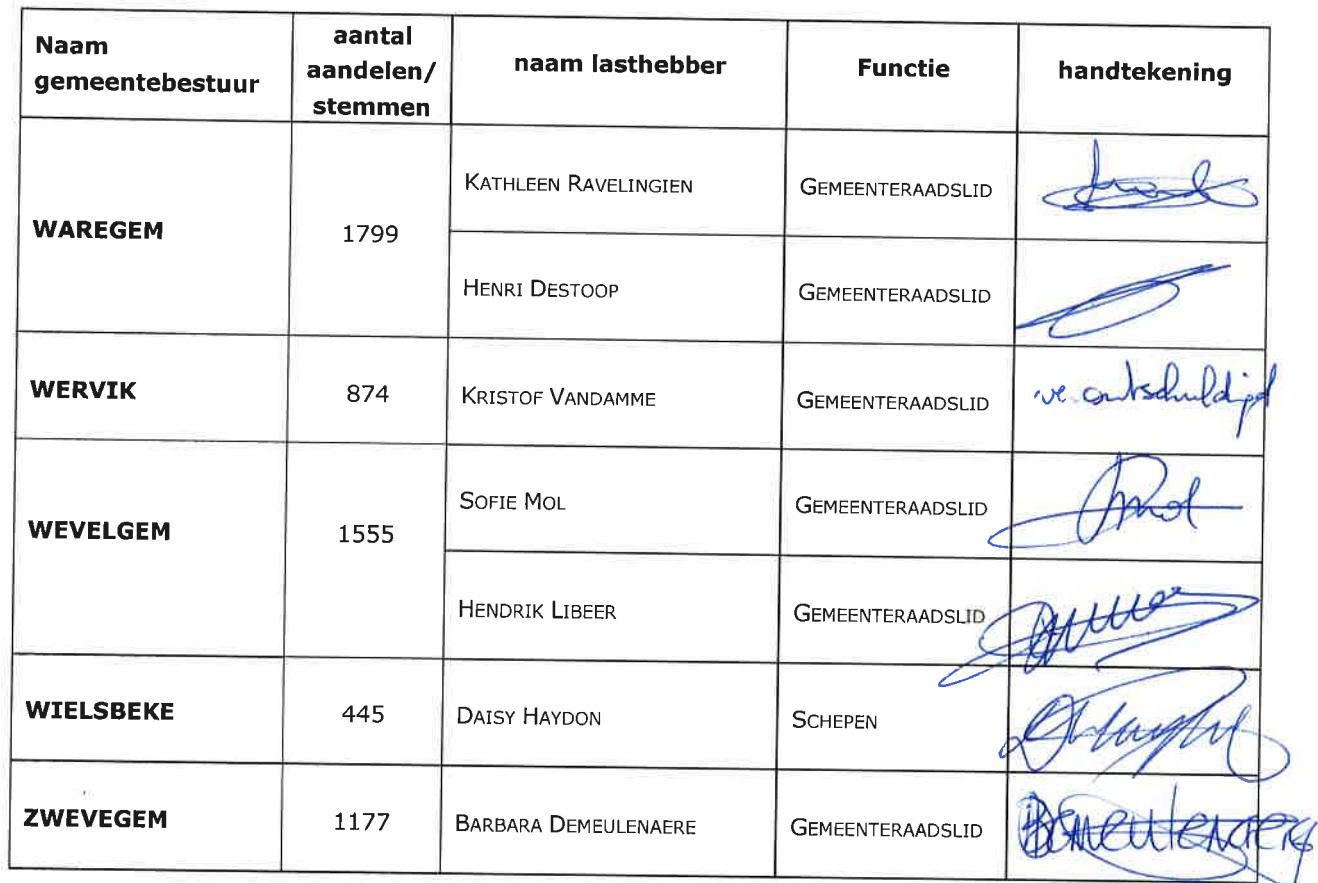 Naam gemeentebestuur
aantal aandelen/ stemmen
naam lasthebber
Functie
handtekening
WAREGEM
1799
KATHLEEN RAVELINGIEN
GEMEENTERAADSLID
HENRI DESTOOP
GEMEENTERAADSLID
WERVIK
874
KRISTOF VANDAMME
GEMEENTERAADSLID
verontschuldigd
WEVELGEM
1555
SOFIE MOL
GEMEENTERAADSLID
Mol
HENDRIK LIBEER
GEMEENTERAADSLID
WIELSBEKE
445
DAISY HAYDON
SCHEPEN
ZWEVEGEM
1177
BARBARA DEMEULENAERE
GEMEENTERAADSLID
BDemeulenaere